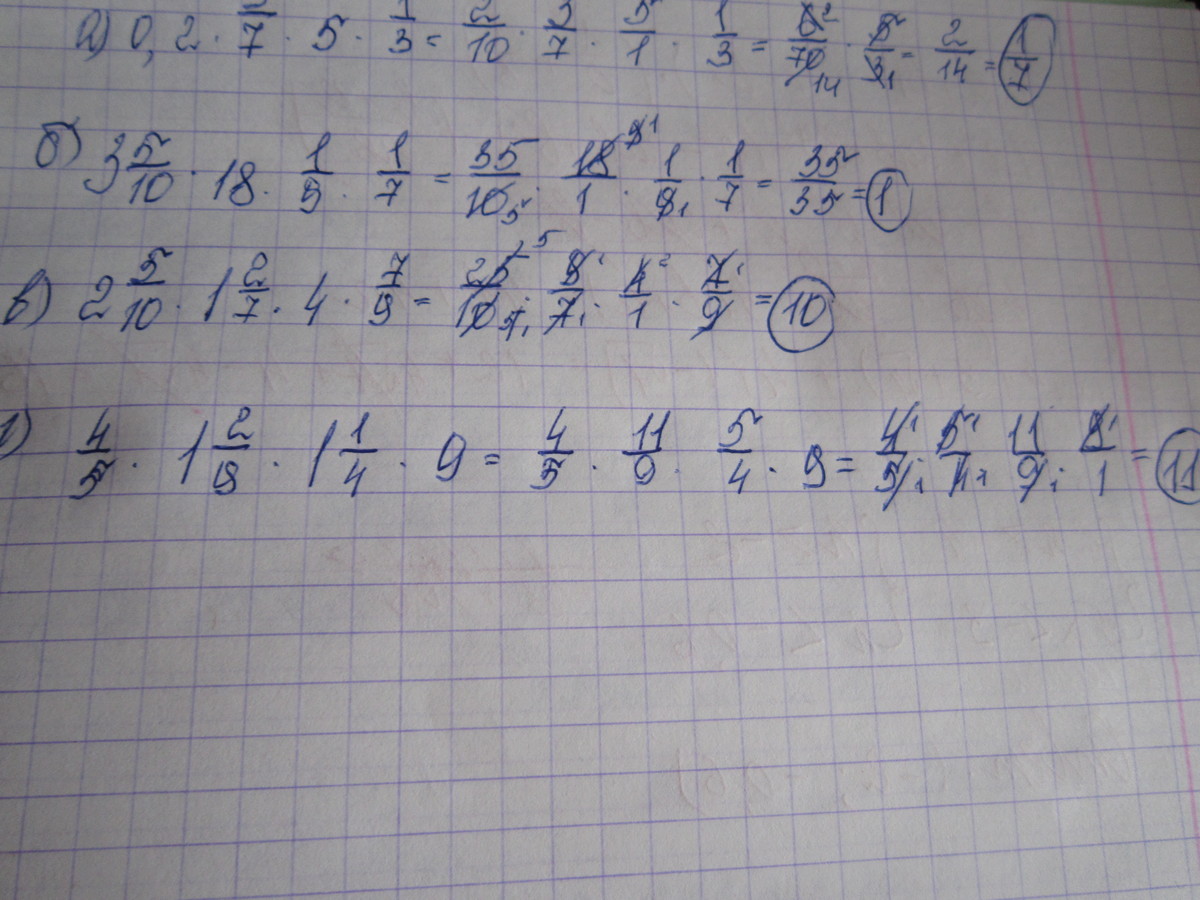 а) 0,2 · 3/7 · 5 · 1/3 = 2/10 · 3/7 · 5/1 · 1/3 = 6²/70₁₄ · 5/3₁ = 2/14 = 1/7
б) 3 5/10 · 18 · 1/9 · 1/7 = 35/10₅ · 18 9 1/1 · 1/9₁ · 1/7 = 35/35 = 1
в) 2 5/10 · 1 2/7 · 4 · 7/9 = 25⁵/10 5₁ · 9¹/7₁ · 4²/1 · 7¹/9 = 10
4/5 · 1 2/9 · 1 1/4 · 9 = 4/5 · 11/9 · 5/4 · 9 = 4¹/5₁ · 5¹/4₁ · 11/9₁ · 9¹/1 = 11